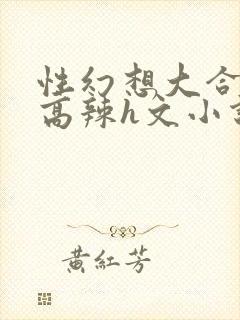 性幻想大合
高辣h文小
黄紅芳